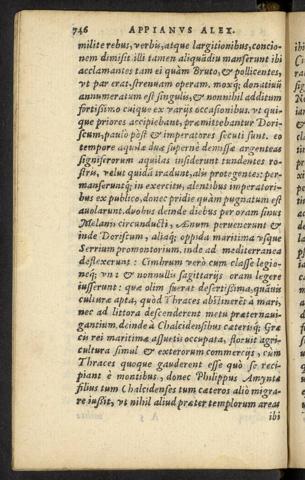 746 APPIANVS ALEX.
milite rebus, verbis, atque largitionibus, concio-
nem dimisit. illi tamen aliquādiu manserunt ibi
acclamantes tam ei quàm Bruto, & pollicentes,
vt par erat. strenuam operam. moxq; donatiuū
annumeratum est singulis, & nonnihil additum
fortissimo cuique ex varijs occasionibus. vt qui-
que priores accipiebant, præmittebantur Dori-
scum, paulò pòst & imperatores secuti sunt. eo
tempore aquilæ duæ supernè demissæ argenteas
signiferorum aquilas insiderunt tundentes ro-
stris, velut quidā tradunt, alis protegentes: per-
manseruntq; in exercitu, alentibus imperatori-
bus ex publico, donec pridie quàm pugnatum est
auolarunt. duobus deinde diebus per oram sinus
Melanis circunducti, Ænum peruenerunt &
inde Doriscum, aliaq; oppida maritima vsque
Serrium promontorium. inde ad mediterranea
deflexerunt: Cimbrum verò cum classe legio-
neq; vna & nonnullis sagittarijs oram legere
iusserunt: quæ olim fuerat desertissima, quāuis
culturæ apta, quòd Thraces abstinerēt à mari,
nec ad littora descenderent metu præternaui-
gantium. deinde à Chalcidensibus cæterisq; Græ-
cis rei maritimæ assuetis occupata, floruit agri-
cultura simul & exterorum commercijs, cum
Thraces quoque gauderent esse quo se reci-
piant è montibus, donec Philippus Amyntæ
filius tum Chalcidenses tum cæteros alio migra-
re iussit, vt nihil aliud præter templorum areas
ibi